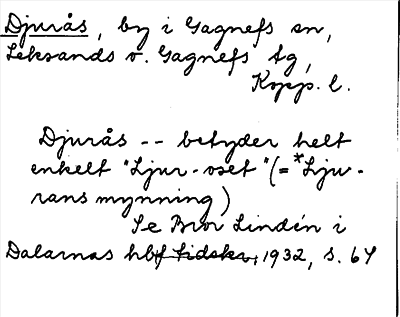 Djurås, by i Gagnefs sn,
Leksands o. Gagnefs tg,
Kopp. l.
Djurås -- betyder helt
enkelt "Ljur-oset" (= *Lju-
rans mynning)
Se Bror Lindén i
Dalarnas hbf tidskr, 1932, s. 64